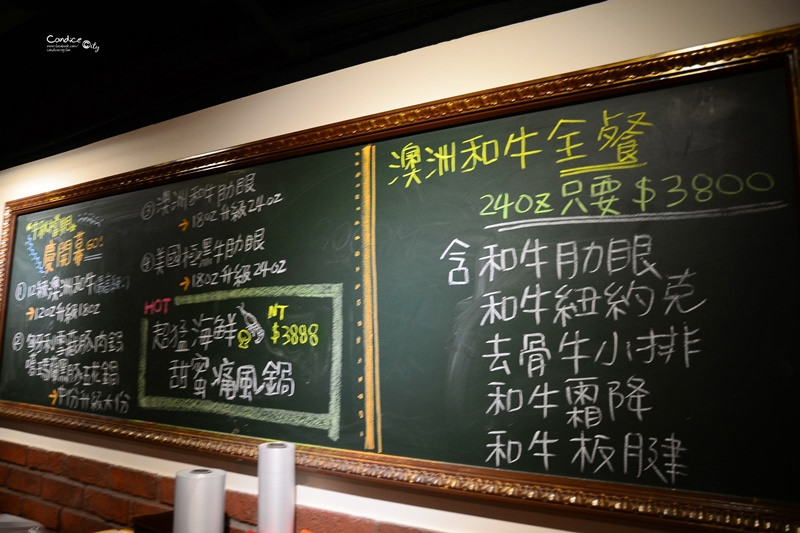 Candice City
慶開幕GO!
① 12級澳洲和牛
→12oz升級18oz
② 伊比利雪花豚肉鍋
嚕瑪蘭黑豚球鍋
→中份升級大份
③ 澳洲和牛肋眼
→18oz升級24oz
④ 美國極黑牛肋眼
→18oz升級24oz
HOT
超猛海鮮
NT
$3888
甜蜜痛風鍋
澳洲和牛全餐
24oz只要$3800
含和牛肋眼
和牛紐約克
去骨牛小排
和牛霜降
和牛板腱